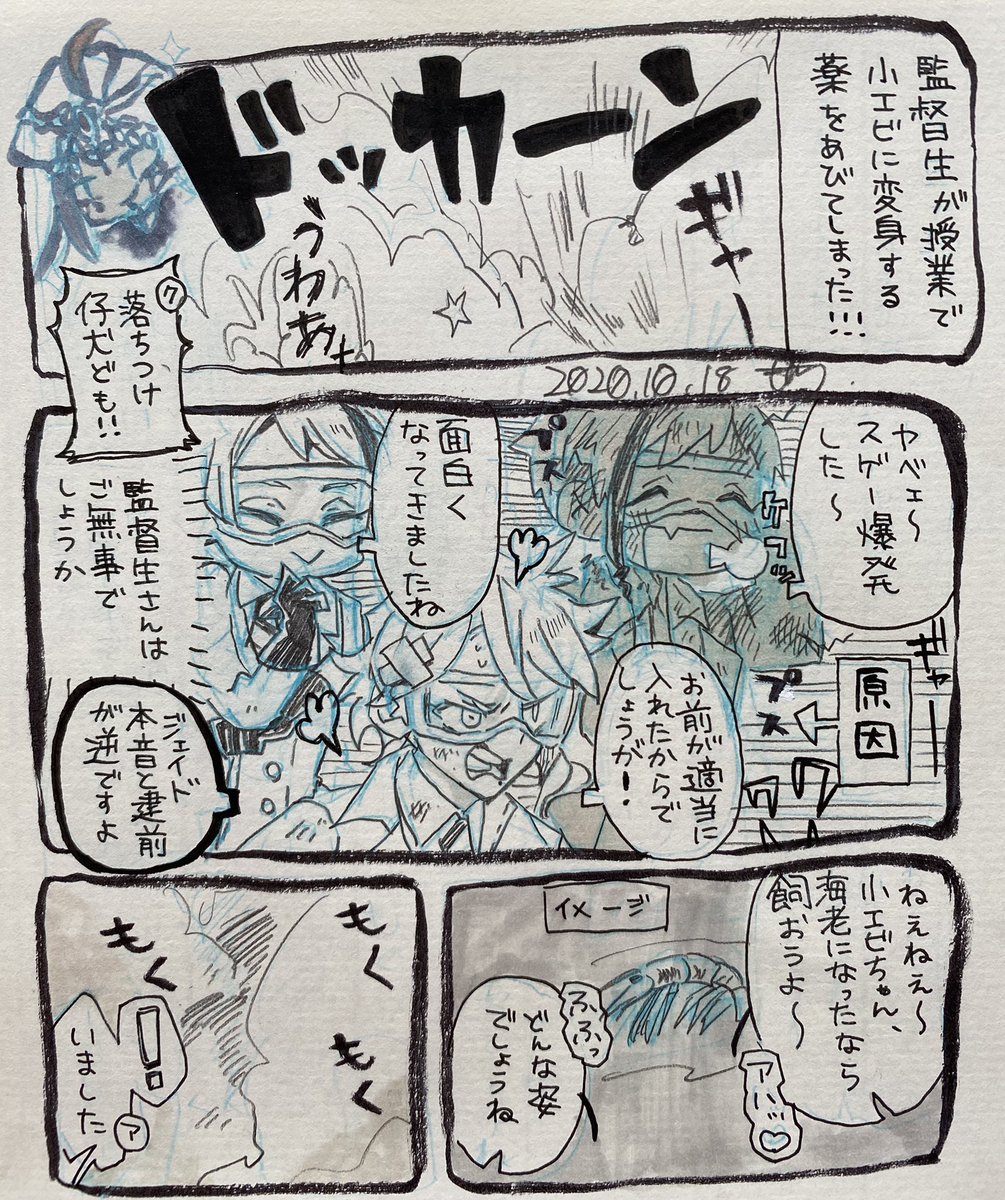 監督生が授業で
小エビに変身する
薬をあびてしまった!!!
ドッカーン
ギャー
うわあ
ク
落ちつけ
仔犬ども!!
2020.10.18
ヤベェ〜
スゲー爆発
した〜
ケラッ
プス
面白く
なってきましたね
監督生さんは
ご無事で
しょうか
ギャー
原因
プス
お前が適当に
入れたからで
しょうが!
ジェイド
本音と建前
が逆ですよ
ねぇねぇ〜
小エビちゃん、
海老になったなら
飼おうよ〜
アハッ♡
イメージ
ふふっ
どんな姿
でしょうね
もく
もく
もく
!
ア
いました